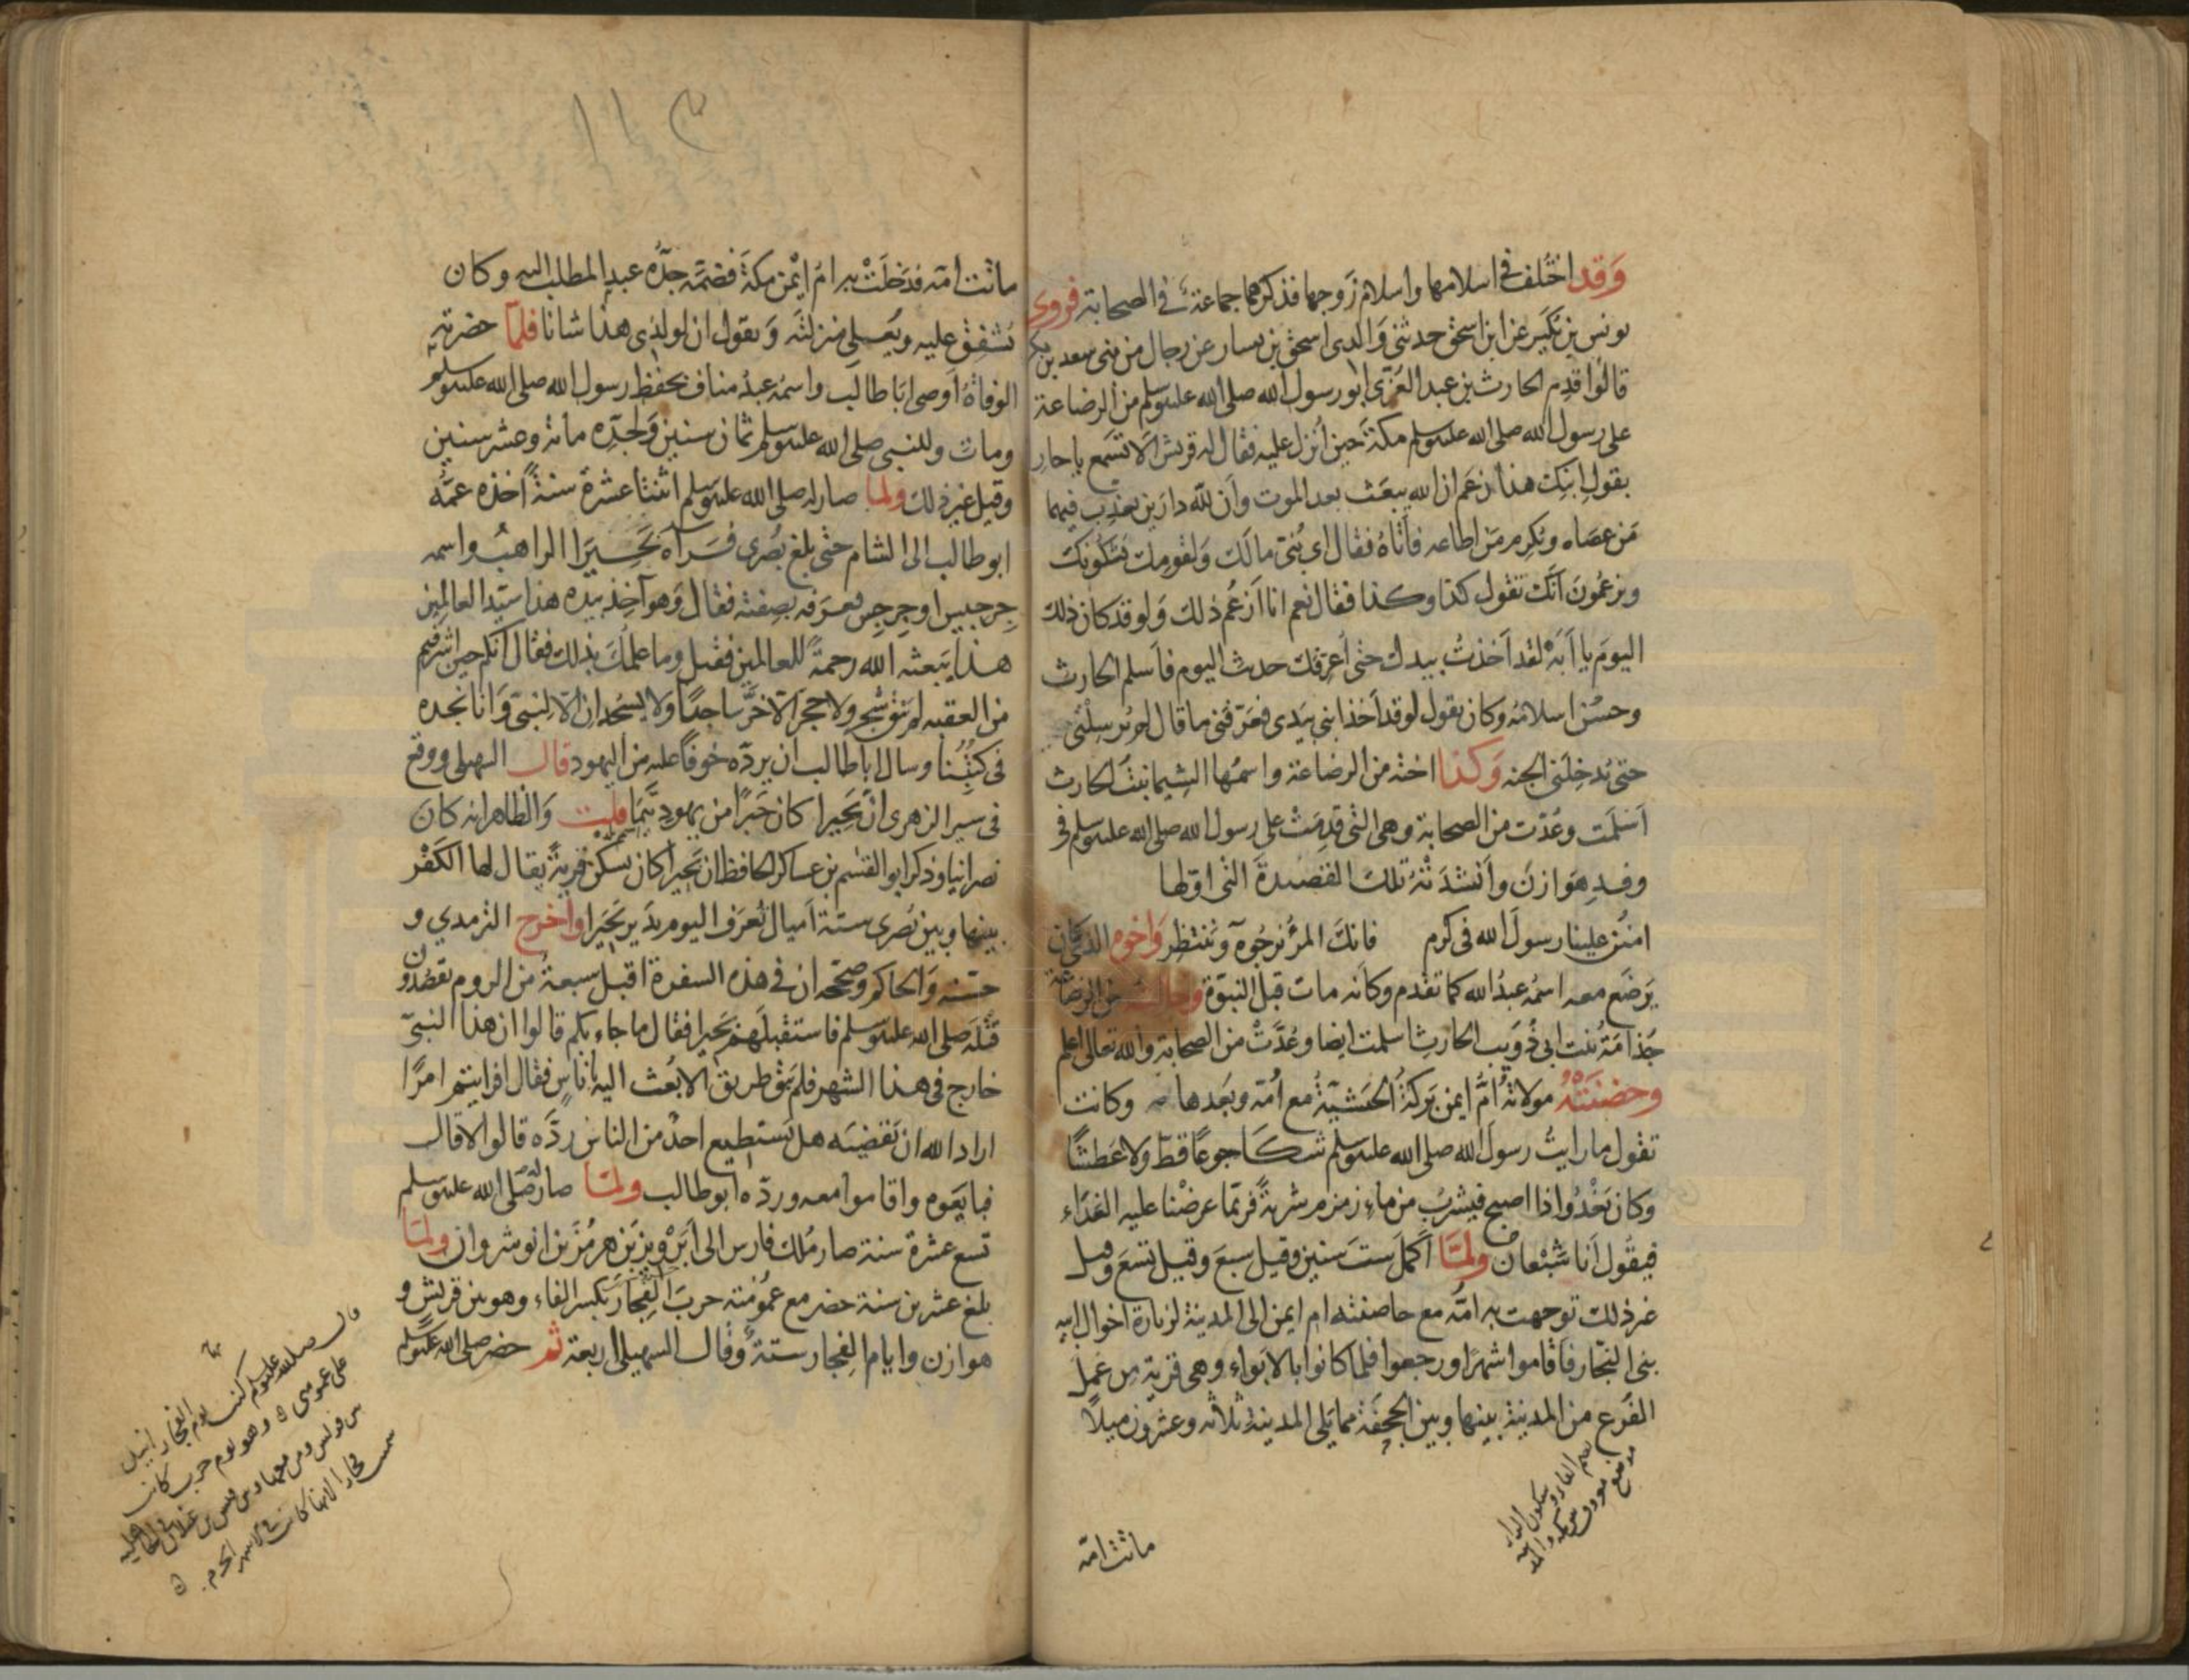 وقد اختلف في اسلامها واسلام زوجها فذكرهما جماعة في الصحابة فروى
يونس بن بكير عن ابن اسحق حدثني والدي اسحق بن يسار عن رجال من بني سعد بن بكر
قالوا قدم الحارث بن عبد العزى ابو رسول الله صلى الله عليه وسلم من الرضاعة
على رسول الله صلى الله عليه وسلم مكة حين أنزل عليه فقال له قريش الا تسمع يا حار
يقول ابنك هذا زعم ان الله يبعث بعد الموت وأن لله دارين يعذب فيهما
من عصاه ويكرم من اطاعه فأتاه فقال اي بني مالك ولقومك يشكونك
ويزعمون أنك تقول كذا وكذا فقال نعم انا أزعم ذلك ولو قد كان ذلك
اليوم يا أبه لقد أخذت بيدك حتى أعرفك حدث اليوم فأسلم الحارث
وحسن اسلامه وكان يقول لو قد أخذ ابني بيدي فعرفني ما قال لم يرسلني
حتى يدخلني الجنه وكذا اخته من الرضاعة واسمها الشيما بنت الحارث
أسلمت وعدت من الصحابة وهي التي قدمت على رسول الله صلى الله عليه وسلم في
وفد هوازن وأنشدته تلك القصيدة التي اولها
امنن علينا رسول الله في كرم فانك المرؤ نرجوه وننتظر واخوه الذي كان
يرضع معه اسمه عبد الله كما تقدم وكأنه مات قبل النبوة وخالته من الرضاعة
جذامة بنت ابي ذويب الحارث اسلمت ايضا وعدت من الصحابة والله تعالى اعلم
وحضنته مولاته أم ايمن بركة الحبشية مع أمه وبعدها وكانت
تقول ما رايت رسول الله صلى الله عليه وسلم شكا جوعا قط ولا عطشا
وكان يغدوا اذا اصبح فيشرب من ماء زمزم شربة فربما عرضنا عليه الغداء
فيقول أنا شبعان ولما أكمل ست سنين وقيل سبع وقيل تسع وقيل
غير ذلك توجهت به امه مع حاضنته ام ايمن الى المدينة لزيارة اخوال ابيه
بني النجار فأقاموا شهرا ورجعوا فلما كانوا بالابواء وهي قرية من عمل
الفرع من المدينة بينها وبين الجحفة مما يلي المدينة ثلاثه وعشرون ميلا
بضم الفاء وسكون الراء
موضع معروف بين مكة والمدينه
ماتت امه
١١٣
ماتت أمه فدخلت به ام أيمن مكة فضمه جده عبد المطلب اليه وكان
يشفق عليه ويعلي منزلته ويقول ان لولدي هذا شانا فلما حضرته
الوفاة أوصى ابا طالب واسمه عبد مناف بحفظ رسول الله صلى الله عليه وسلم
ومات وللنبي صلى الله عليه وسلم ثمان سنين ولجده مائة وعشر سنين
وقيل غير ذلك ولما صار له صلى الله عليه وسلم اثنتا عشرة سنة أخذه عمه
ابو طالب الى الشام حتى بلغ بصرى فرآه بحيرا الراهب واسمه
جرجيس او جرجس فعرفه بصفته فقال وهو آخذ بيده هذا سيد العالمين
هذا يبعثه الله رحمة للعالمين فقيل وما علمك بذلك فقال انكم حين اشرفتم
من العقبه لم يبق شجر ولا حجر الا خر ساجدا ولا يسجدان الا لنبي وانا نجده
في كتبنا وسال ابا طالب ان يرده خوفا عليه من اليهود قال السهيلي ووقع
في سير الزهري ان بحيرا كان حبرا من يهود تيما قلت والظاهر انه كان
نصرانيا وذكر ابو القسم بن عساكر الحافظ ان بحيرا كان يسكن قرية يقال لها الكفر
بينها وبين بصرى ستة أميال تعرف اليوم بدير بحيرا وأخرج الترمذي و
حسنه والحاكم وصححه ان في هذه السفرة اقبل سبعة من الروم يقصدون
قتله صلى الله عليه وسلم فاستقبلهم بحيرا فقال ما جاء بكم قالوا ان هذا النبي
خارج في هذا الشهر فلم يبق طريق الا بعث اليها باناس فقال افرايتم امرا
اراد الله ان يقضيه هل يستطيع احد من الناس رده قالوا لا قال
فبايعوه واقاموا معه ورده ابو طالب ولما صار له صلى الله عليه وسلم
تسع عشرة سنة صار ملك فارس الى ابرويز بن هرمز بن انوشروان ولما
بلغ عشرين سنة حضر مع عمومته حرب الفجار بكسر الفاء وهو بين قريش و
هوازن وايام الفجار ستة وقال السهيلي اربعة ثم حضر صلى الله عليه وسلم
قال صلى الله عليه وسلم كنت يوم الفجار انبل
على عمومتي وهو يوم حرب كانت
بين قريش ومن معها وبين قيس بن غيلان في الجاهلية
سميت فجارا لانها كانت في الاشهر الحرم